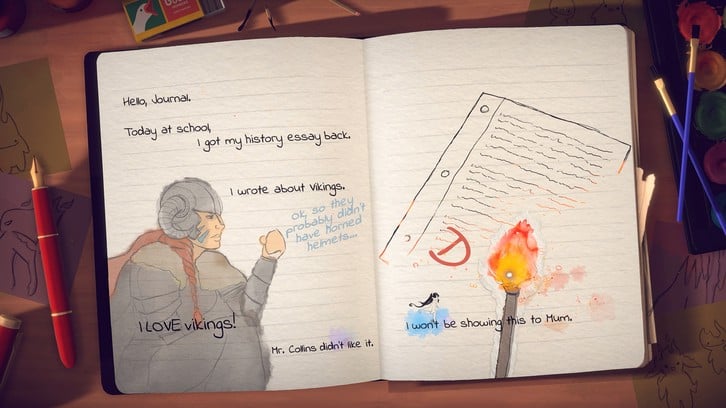 Hello, Journal.
Today at school,
I got my history essay back.
I wrote about Vikings.
ok, so they
probably didn't
have horned
helmets...
I LOVE vikings!
Mr. Collins didn't like it.
D
I won't be showing this to Mum.